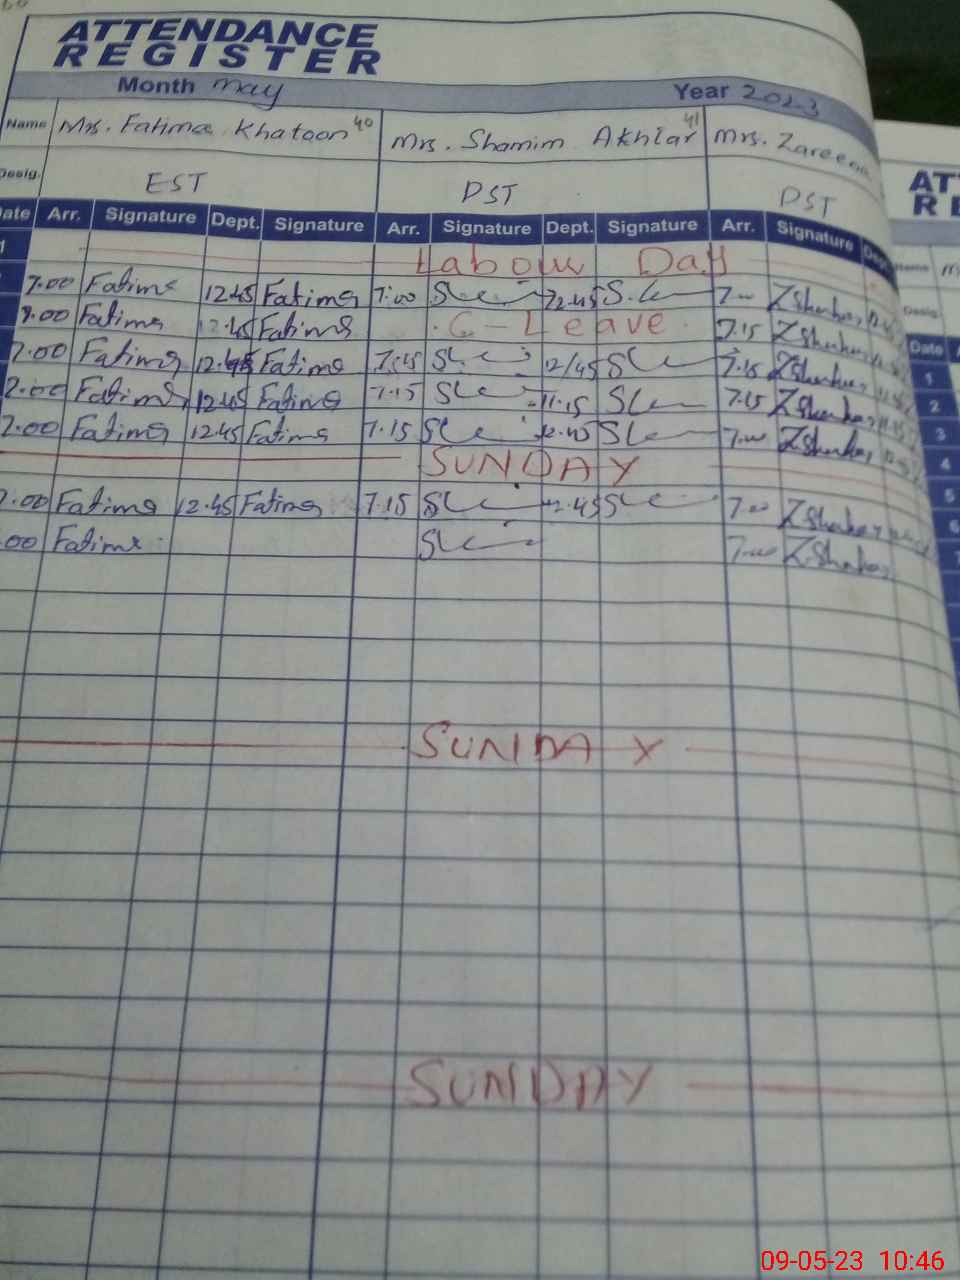 ATTENDANCE
REGISTER
Month may Year 2023
Name Mrs. Fatima Khatoon 40 Mrs. Shamim Akhtar 41 Mrs. Zareena
Desig. EST DST DST
Date Arr. Signature Dept. Signature Arr. Signature Dept. Signature Arr. Signature Dept.
1 Labour Day
7.00 Fatima 12.45 Fatima 7.00 12.45 7.00 ZShankar
7.00 Fatima 12.45 Fatima C-Leave 7.15 ZShankar
7.00 Fatima 12.45 Fatima 7.15 12/45 7.15 ZShankar
7.00 Fatima 12.45 Fatima 7.15 11.15 7.15 ZShankar
7.00 Fatima 12.45 Fatima 7.15 12.45 7.00 ZShankar
SUNDAY
7.00 Fatima 12.45 Fatima 7.15 12.45 7.00 ZShankar
.00 Fatima 7.00 ZShankar
SUNDAY
SUNDAY
AT
RE
Name
Desig.
Date
1
2
3
4
5
6
09-05-23 10:46